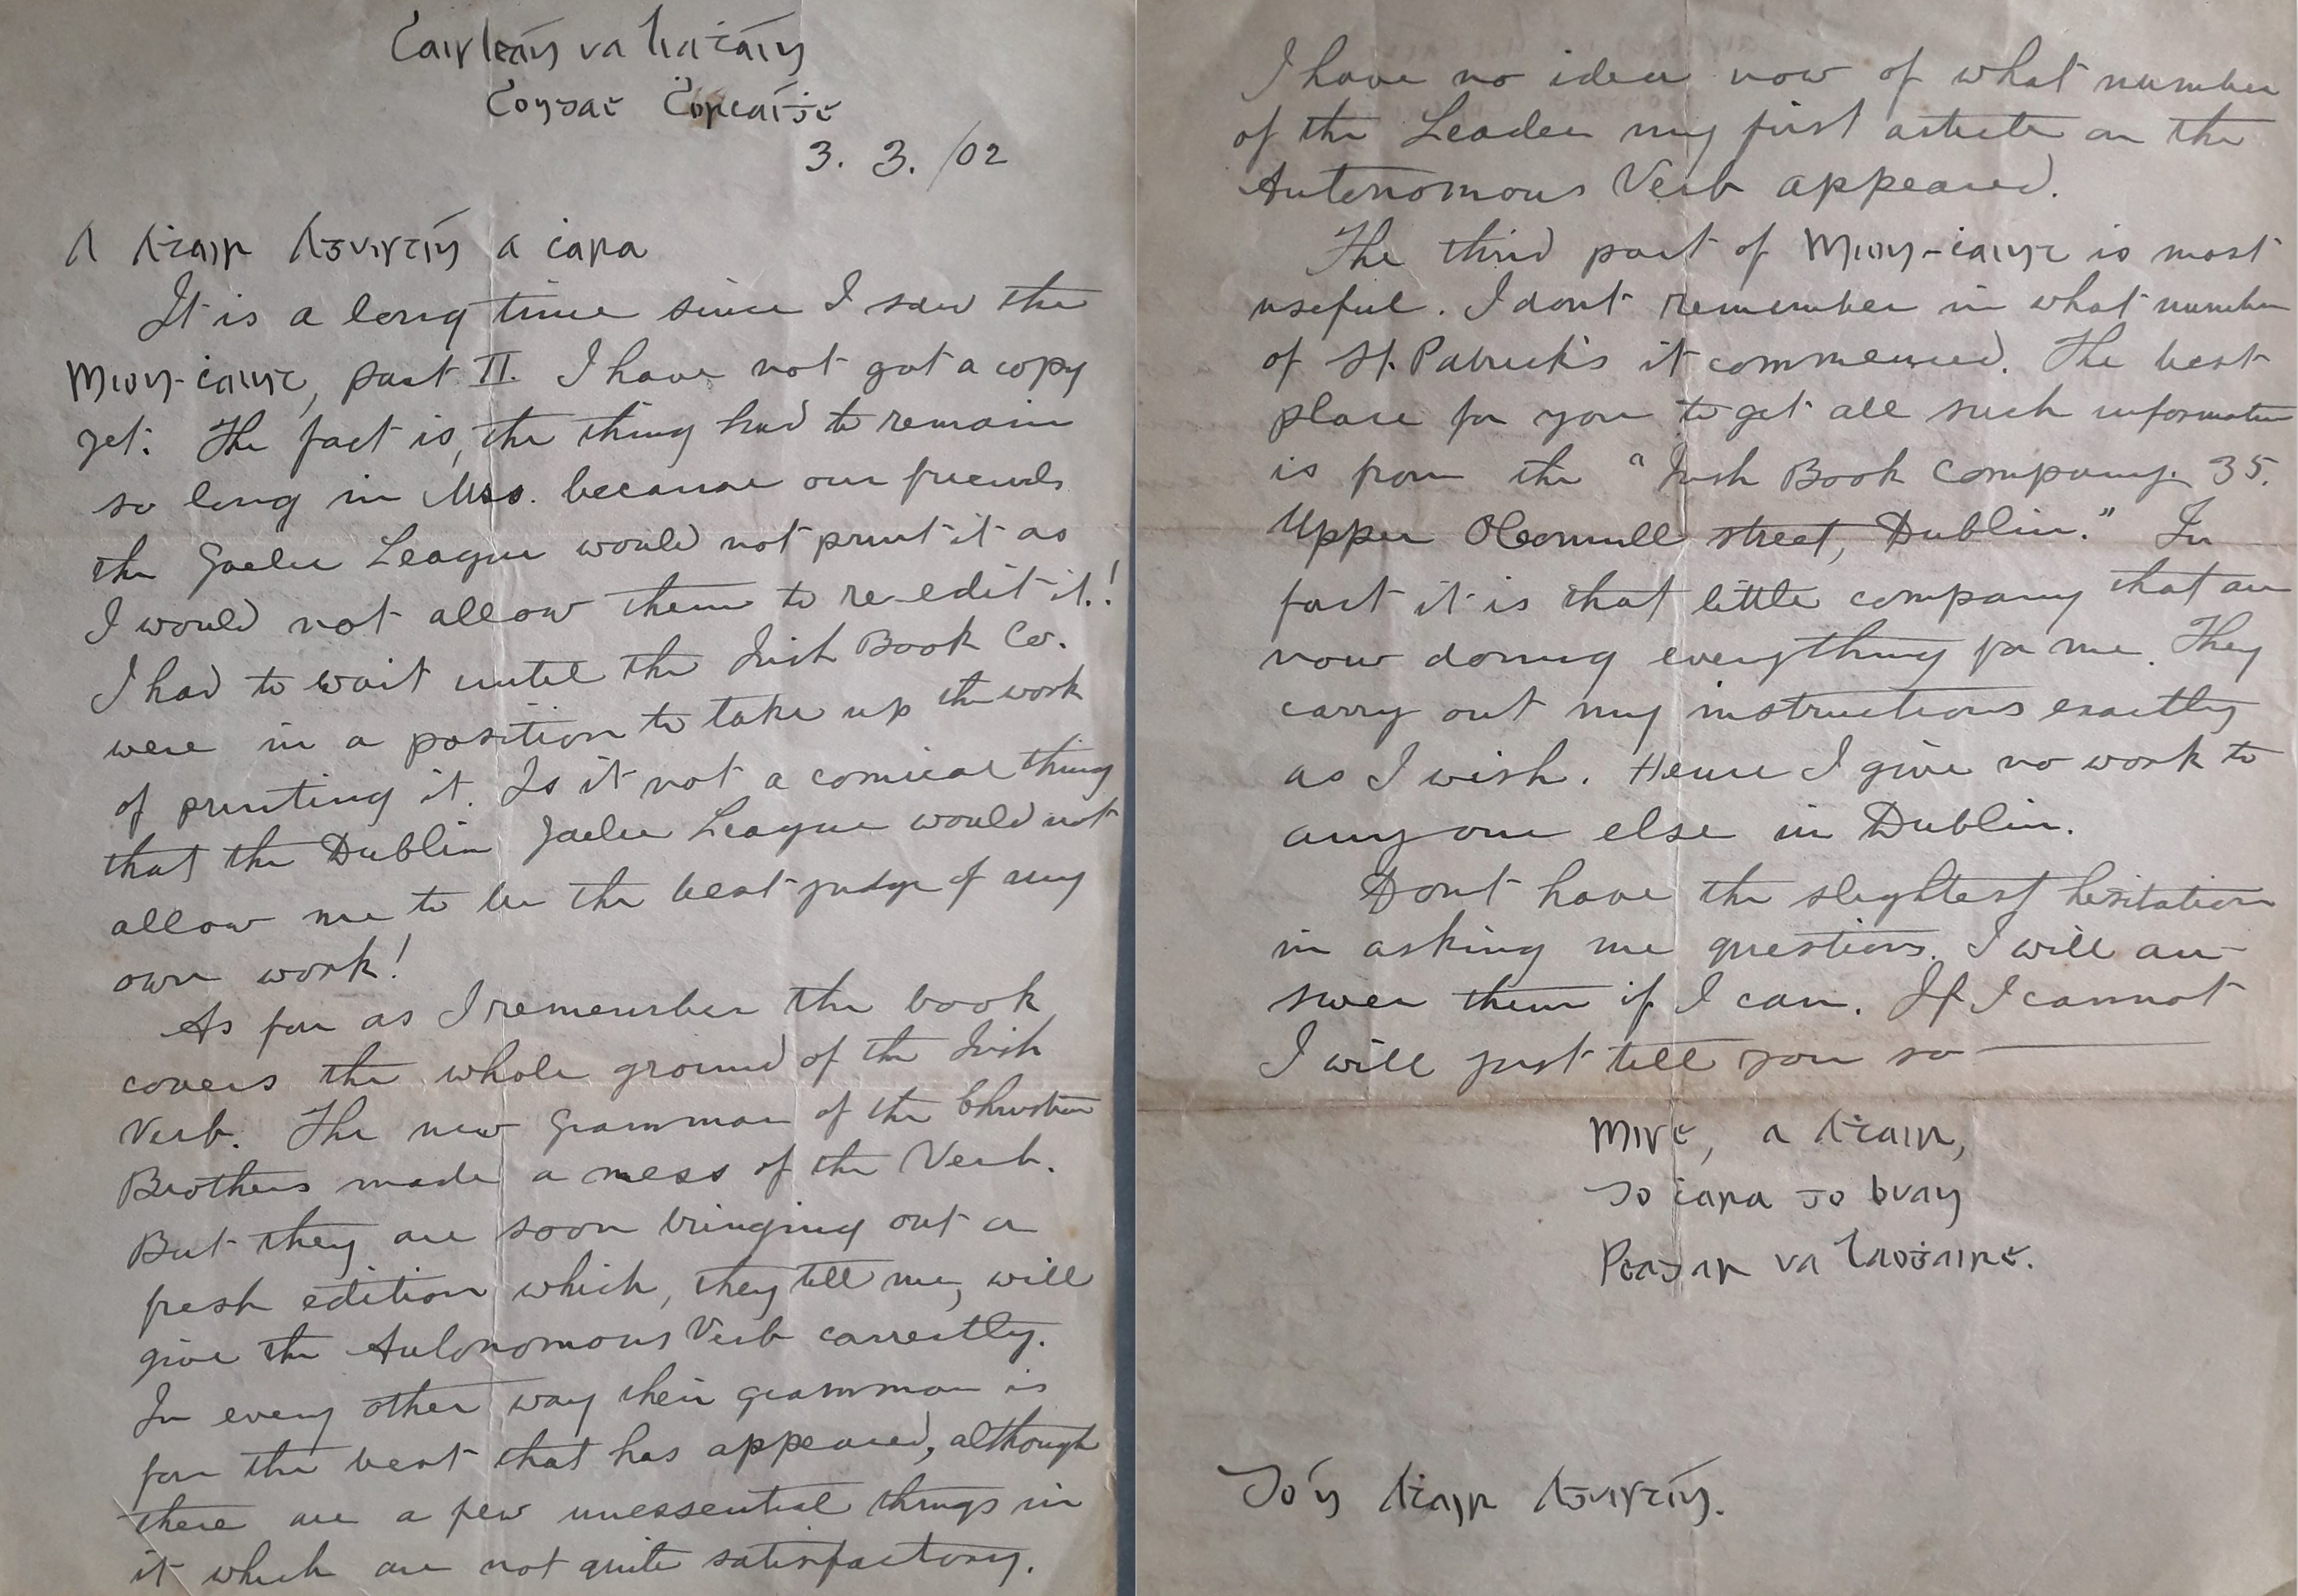 Caisleán ua Liatáin
Conдae Corcaiġe
3. 3. /02
A Aṫair Aguistín a ċara
It is a long time since I saw the
Mion-ċaint, part II. I have not got a copy
yet. The fact is, the thing had to remain
so long in Mss. because our friends
the Gaelic League would not print it as
I would not allow them to re-edit it.!
I had to wait until the Irish Book Co.
were in a position to take up the work
of printing it. Is it not a comical thing
that the Dublin Gaelic League would not
allow me to be the best judge of my
own work!
As far as I remember the book
covers the whole ground of the Irish
Verb. The new Grammar of the Christian
Brothers made a mess of the Verb.
But they are soon bringing out a
fresh edition which, they tell me, will
give the Autonomous Verb correctly.
In every other way their grammar is
far the best that has appeared, although
there are a few unessential things in
it which are not quite satisfactory.
I have no idea now of what number
of the Leader my first article on the
Autonomous Verb appeared.
The third part of Mion-ċaint is most
useful. I dont remember in what number
of St. Patrick's it commenced. The best
place for you to get all such information
is from the "Irish Book Company. 35.
Upper OConnell street, Dublin." In
fact it is that little company that are
now doing everything for me. They
carry out my instructions exactly
as I wish. Hence I give no work to
any one else in Dublin.
Dont have the slightest hesitation
in asking me questions. I will an-
swer them if I can. If I cannot
I will just tell you so —
Mise, a Aṫair,
do ċara go buan
Peadar ua Laoġaire.
Do'n Aṫair Aguistín.